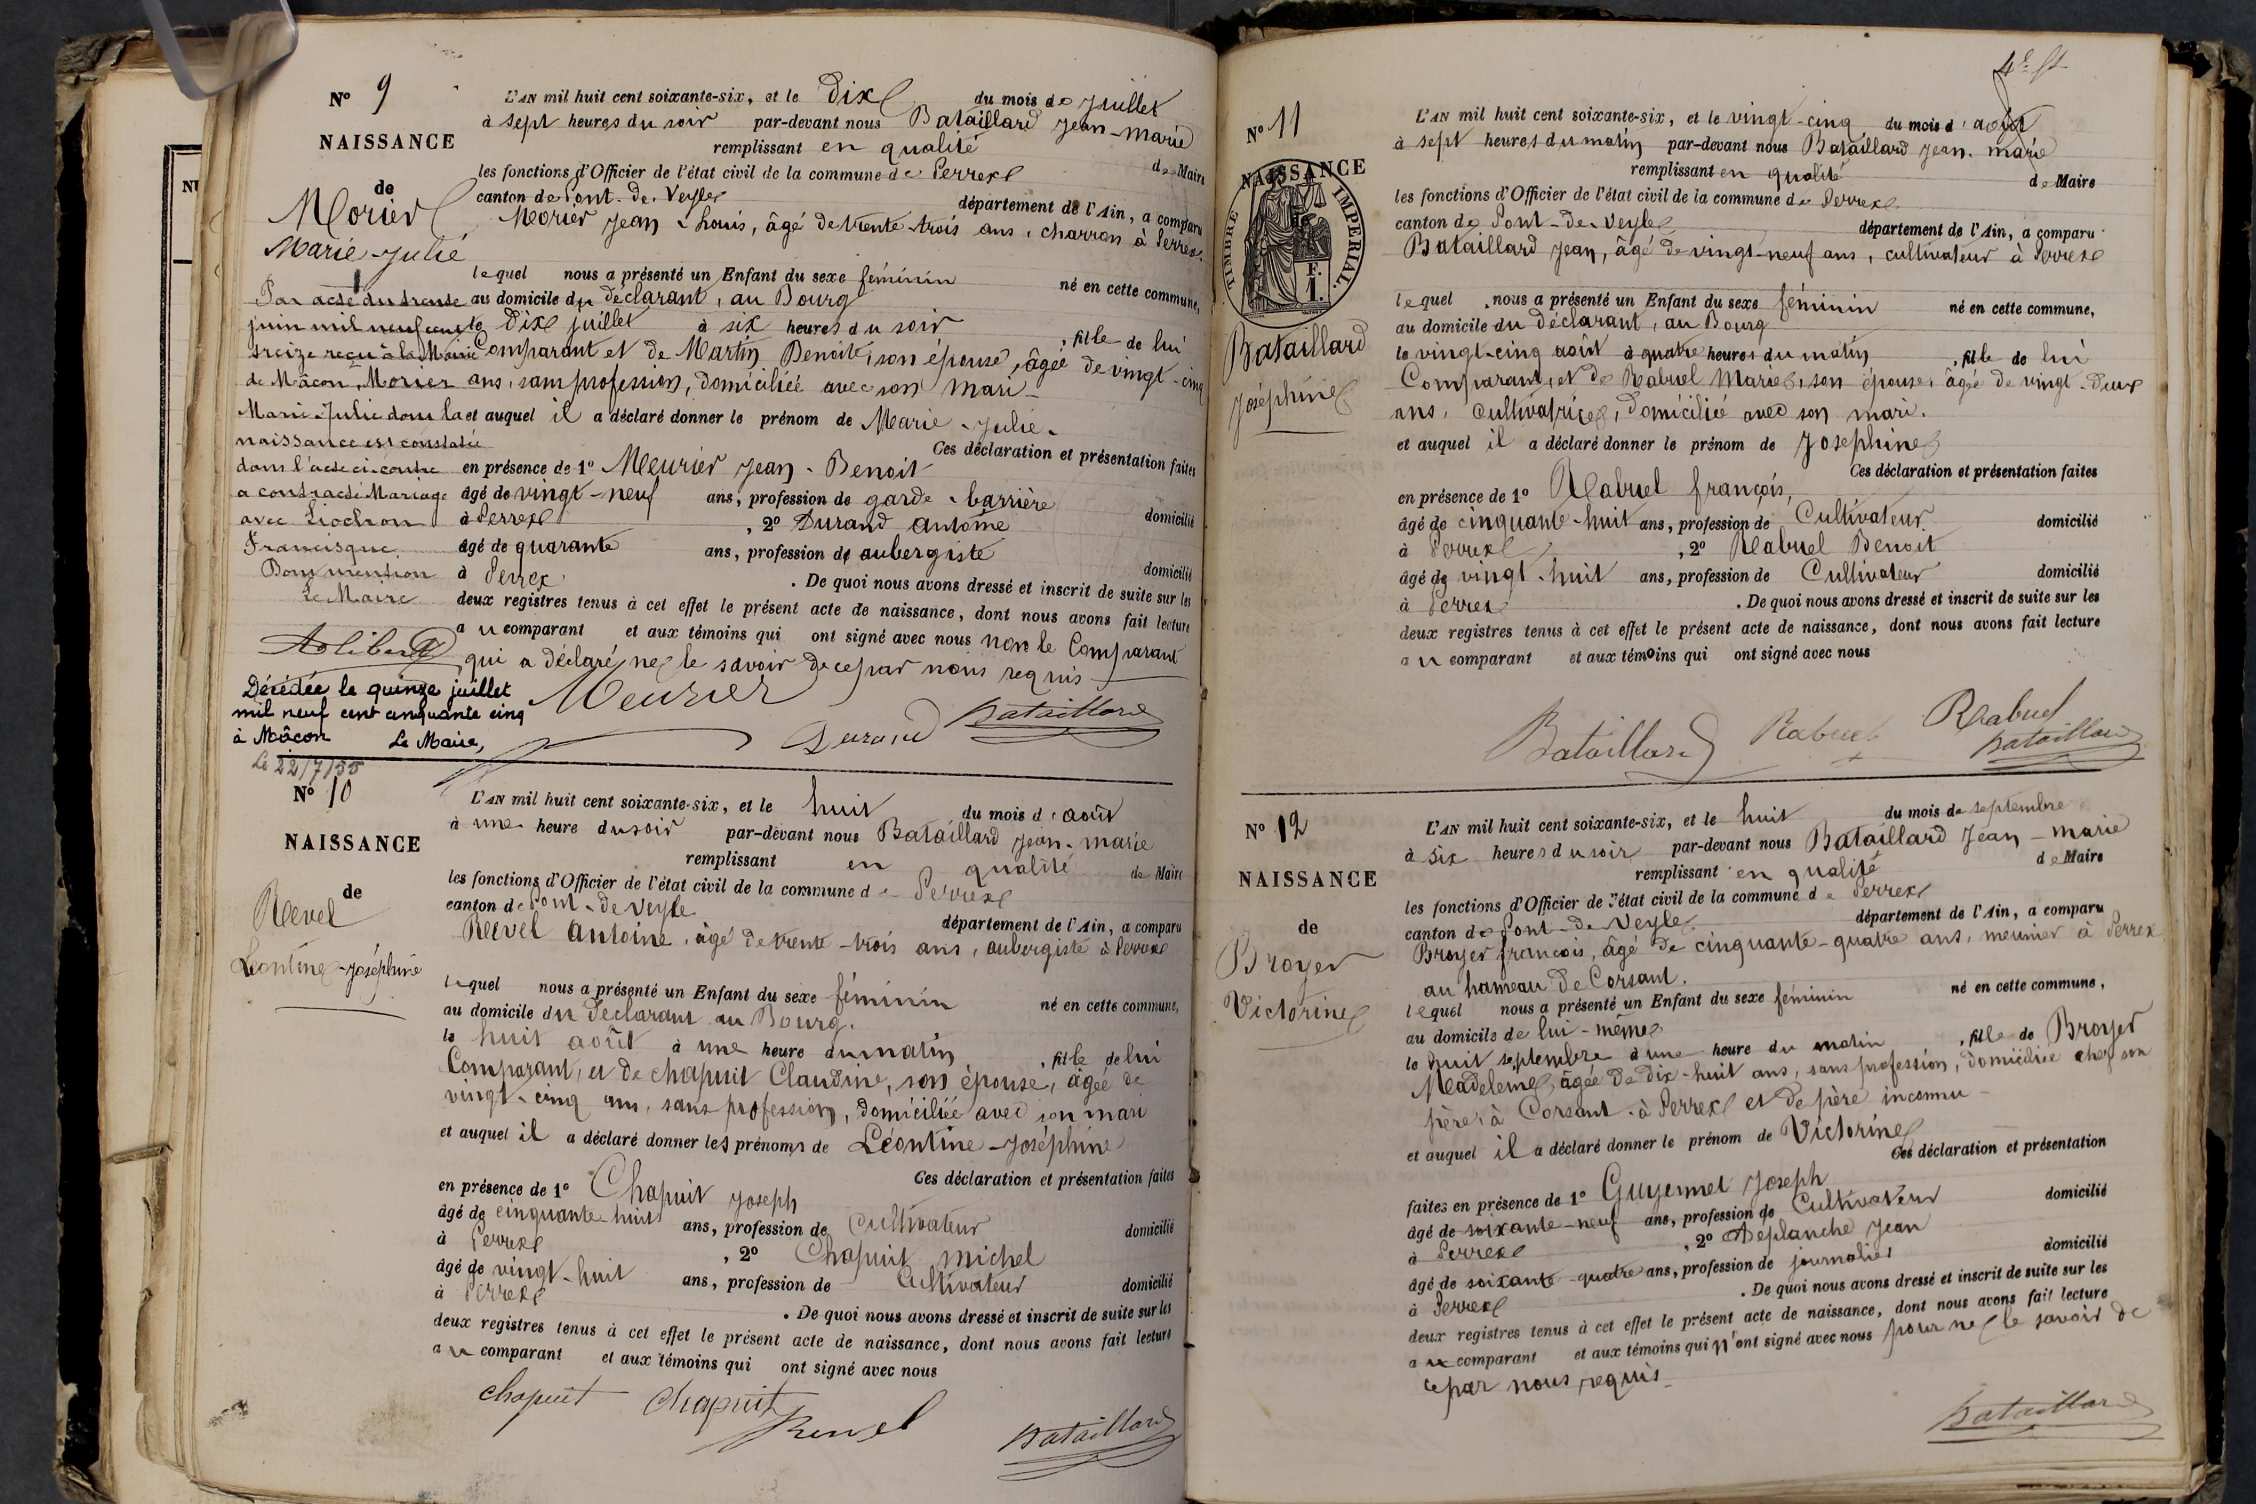 N° 9
NAISSANCE
de
Morier
Marie-Julie
Par acte du trente
juin mil neuf cent
treize reçu à la Mairie
de Mâcon, Morier
Marie-Julie dont la
naissance est constatée
dans l'acte ci-contre
a contracté Mariage
avec Liochon
Francisque.
Dont mention
Le Maire
Décédée le quinze juillet
mil neuf cent cinquante cinq
à Mâcon Le Maire,
Le 22/7/55
L'AN mil huit cent soixante-six, et le dix du mois de Juillet
à sept heures du soir par-devant nous Bataillard Jean-Marie
remplissant en qualité de Maire
les fonctions d'Officier de l'état civil de la commune de Perrex
canton de Pont-de-Veyle département de l'Ain, a comparu
Morier Jean-Louis, âgé de trente-trois ans, charron à Perrex.
lequel nous a présenté un Enfant du sexe féminin né en cette commune,
au domicile du déclarant, au Bourg
le dix juillet à six heures du soir, fille de lui
Comparant et de Martin Benoite, son épouse, âgée de vingt-cinq
ans, sans profession, domiciliée avec son mari
et auquel il a déclaré donner le prénom de Marie-Julie.
Ces déclaration et présentation faites
en présence de 1° Meurier Jean-Benoit
âgé de vingt-neuf ans, profession de garde-barrière domicilié
à Perrex, 2° Durand Antoine
âgé de quarante ans, profession de aubergiste domicilié
à Perrex. De quoi nous avons dressé et inscrit de suite sur les
deux registres tenus à cet effet le présent acte de naissance, dont nous avons fait lecture
au comparant et aux témoins qui ont signé avec nous non le Comparant
qui a déclaré ne le savoir de ce par nous requis
Meurier
Durand Bataillard
N° 10
NAISSANCE
de
Revel
Léontine-Joséphine
L'AN mil huit cent soixante-six, et le huit du mois d'août
à une heure du soir par-devant nous Bataillard Jean-Marie
remplissant en qualité de Maire
les fonctions d'Officier de l'état civil de la commune de Perrex
canton de Pont-de-Veyle département de l'Ain, a comparu
Revel Antoine, âgé de trente-trois ans, aubergiste à Perrex
lequel nous a présenté un Enfant du sexe féminin né en cette commune,
au domicile du déclarant au Bourg.
le huit août à une heure du matin, fille de lui
Comparant, et de Chapuit Claudine, son épouse, âgée de
vingt-cinq ans, sans profession, domiciliée avec son mari
et auquel il a déclaré donner les prénoms de Léontine-Joséphine
Ces déclaration et présentation faites
en présence de 1° Chapuit Joseph
âgé de cinquante-huit ans, profession de Cultivateur domicilié
à Perrex, 2° Chapuit Michel
âgé de vingt-huit ans, profession de Cultivateur domicilié
à Perrex. De quoi nous avons dressé et inscrit de suite sur les
deux registres tenus à cet effet le présent acte de naissance, dont nous avons fait lecture
au comparant et aux témoins qui ont signé avec nous
Chapuit Chapuit
Revel Bataillard
N° 11
NAISSANCE
TIMBRE IMPERIAL
F.
1.
Bataillard
Joséphine
L'AN mil huit cent soixante-six, et le vingt-cinq du mois d'août
à sept heures du matin par-devant nous Bataillard Jean-Marie
remplissant en qualité de Maire
les fonctions d'Officier de l'état civil de la commune de Perrex
canton de Pont-de-Veyle département de l'Ain, a comparu
Bataillard Jean, âgé de vingt-neuf ans, cultivateur à Perrex
lequel nous a présenté un Enfant du sexe féminin né en cette commune,
au domicile du déclarant, au Bourg
le vingt-cinq août à quatre heures du matin, fille de lui
Comparant, et de Rabuel Marie, son épouse, âgée de vingt-deux
ans, Cultivatrice, domiciliée avec son mari.
et auquel il a déclaré donner le prénom de Joséphine
Ces déclaration et présentation faites
en présence de 1° Rabuel François,
âgé de cinquante-huit ans, profession de Cultivateur domicilié
à Perrex, 2° Rabuel Benoit
âgé de vingt-huit ans, profession de Cultivateur domicilié
à Perrex. De quoi nous avons dressé et inscrit de suite sur les
deux registres tenus à cet effet le présent acte de naissance, dont nous avons fait lecture
au comparant et aux témoins qui ont signé avec nous
Bataillard Rabuel Rabuel
Bataillard
N° 12
NAISSANCE
de
Broyer
Victorine
L'AN mil huit cent soixante-six, et le huit du mois de septembre
à six heures du soir par-devant nous Bataillard Jean-Marie
remplissant en qualité de Maire
les fonctions d'Officier de l'état civil de la commune de Perrex
canton de Pont-de-Veyle département de l'Ain, a comparu
Broyer François, âgé de cinquante-quatre ans, meunier à Perrex
au hameau de Corsant.
lequel nous a présenté un Enfant du sexe féminin né en cette commune,
au domicile de lui-même
le huit septembre à une heure du matin, fille de Broyer
Madeleine, âgée de dix-huit ans, sans profession, domiciliée chez son
père à Corsant à Perrex et de père inconnu
et auquel il a déclaré donner le prénom de Victorine
Ces déclaration et présentation
faites en présence de 1° Guyennet Joseph
âgé de soixante-neuf ans, profession de Cultivateur domicilié
à Perrex, 2° Déplanche Jean
âgé de soixante-quatre ans, profession de journalier domicilié
à Perrex. De quoi nous avons dressé et inscrit de suite sur les
deux registres tenus à cet effet le présent acte de naissance, dont nous avons fait lecture
au comparant et aux témoins qui n'ont signé avec nous pour ne le savoir de
ce par nous requis
Bataillard